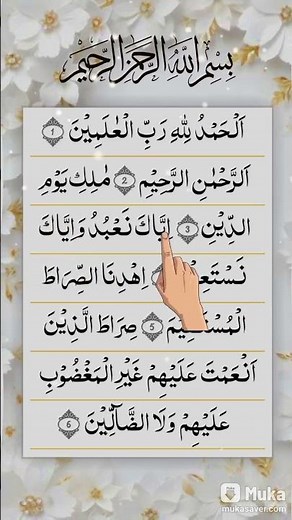 بِسْمِ اللّٰهِ الرَّحْمٰنِ الرَّحِيْمِ
اَلْحَمْدُ لِلّٰهِ رَبِّ الْعٰلَمِيْنَ ۝1
الرَّحْمٰنِ الرَّحِيْمِ ۝2 مٰلِكِ يَوْمِ
الدِّيْنِ ۝3 اِيَّاكَ نَعْبُدُ وَاِيَّاكَ
اِهْدِنَا الصِّرَاطَ
۝5 صِرَاطَ الَّذِيْنَ
اَنْعَمْتَ عَلَيْهِمْ غَيْرِ الْمَغْضُوْبِ
عَلَيْهِمْ وَلَا الضَّآلِّيْنَ ۝6
Muka
mukasaver.com